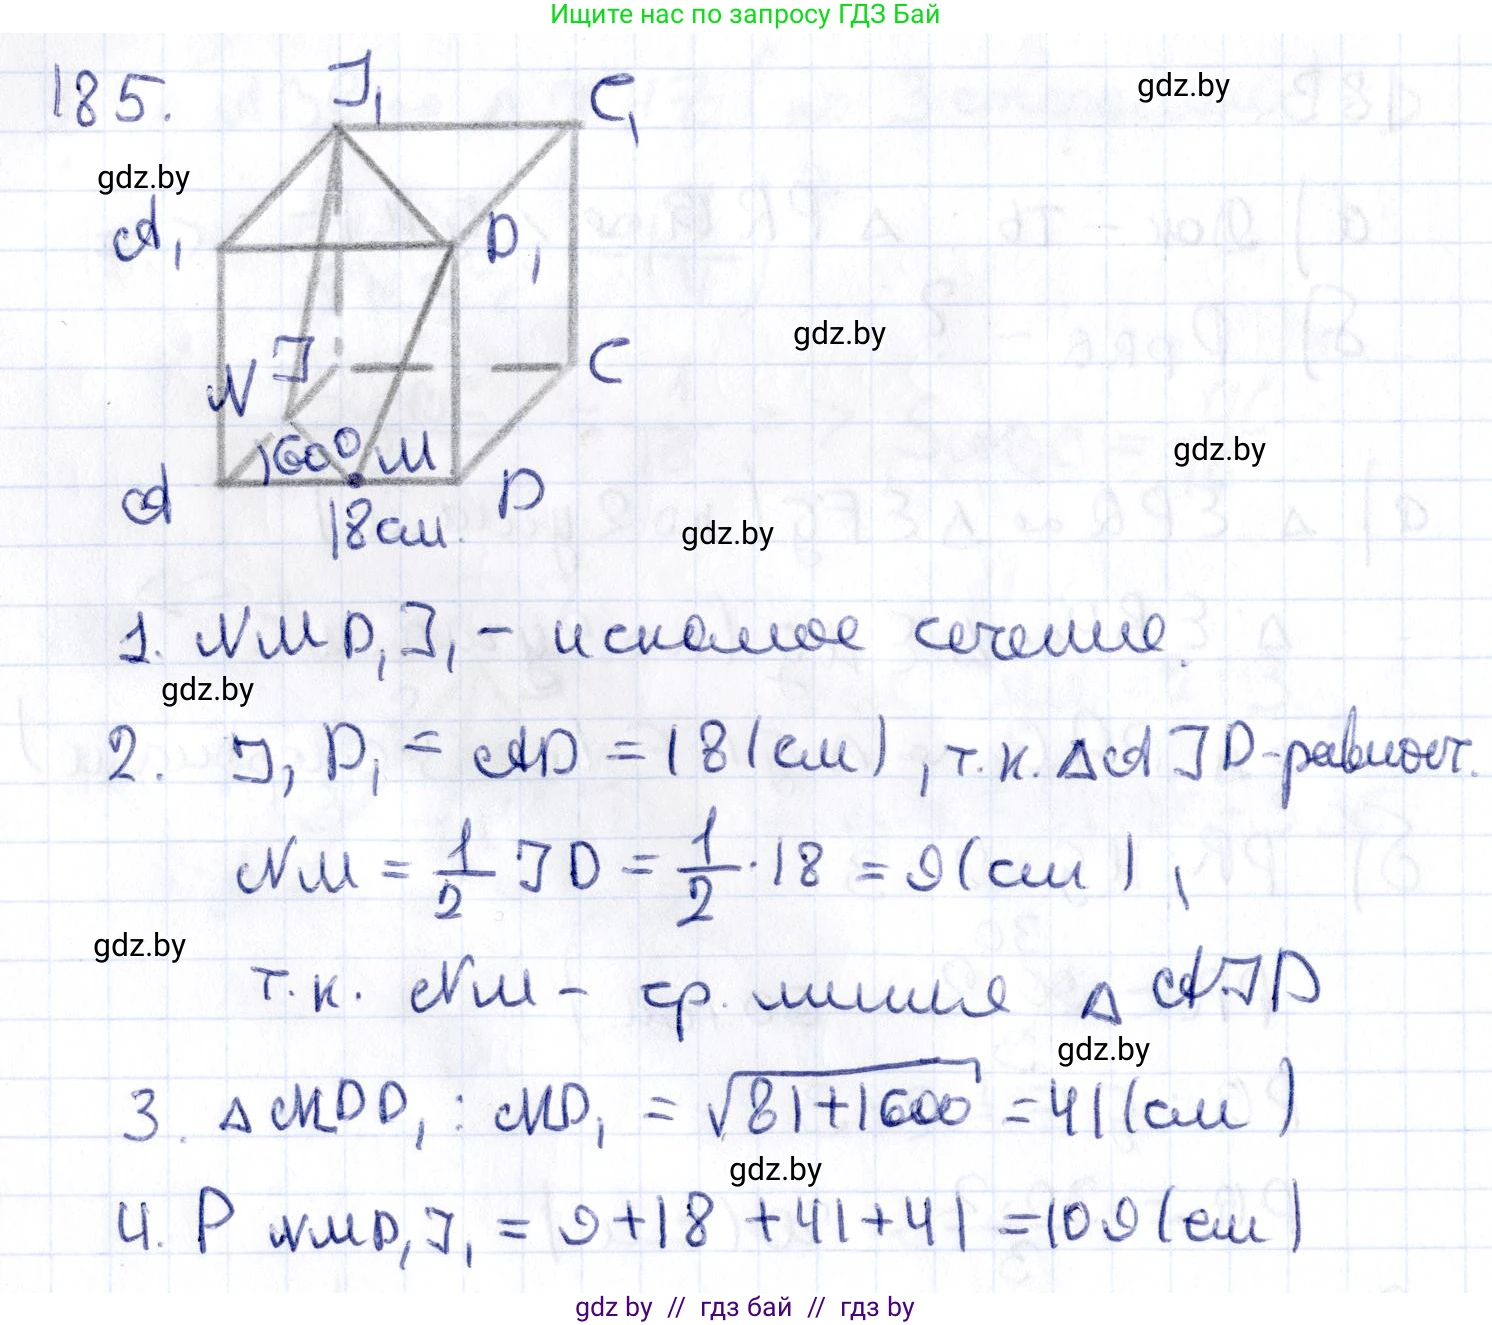 Ищите нас по запросу ГДЗ Бай
185.
J₁ C₁
gdz.by
gdz.by
A₁ D₁
gdz.by
N J C
60° M
gdz.by
A D
18см.
gdz.by
1. NMD₁J₁ – искомое сечение.
gdz.by
2. J₁D₁ = AD = 18 (см), т.к. ΔAJD-равност.
NM = 1/2 JD = 1/2 · 18 = 9 (см),
gdz.by
т.к. NM – ср. линия Δ AJD
gdz.by
3. ΔMDD₁ : MD₁ = √81+1600 = 41 (см)
gdz.by
4. P NMD₁J₁ = 9+18+41+41=109 (см)
gdz by // гдз бай // гдз by